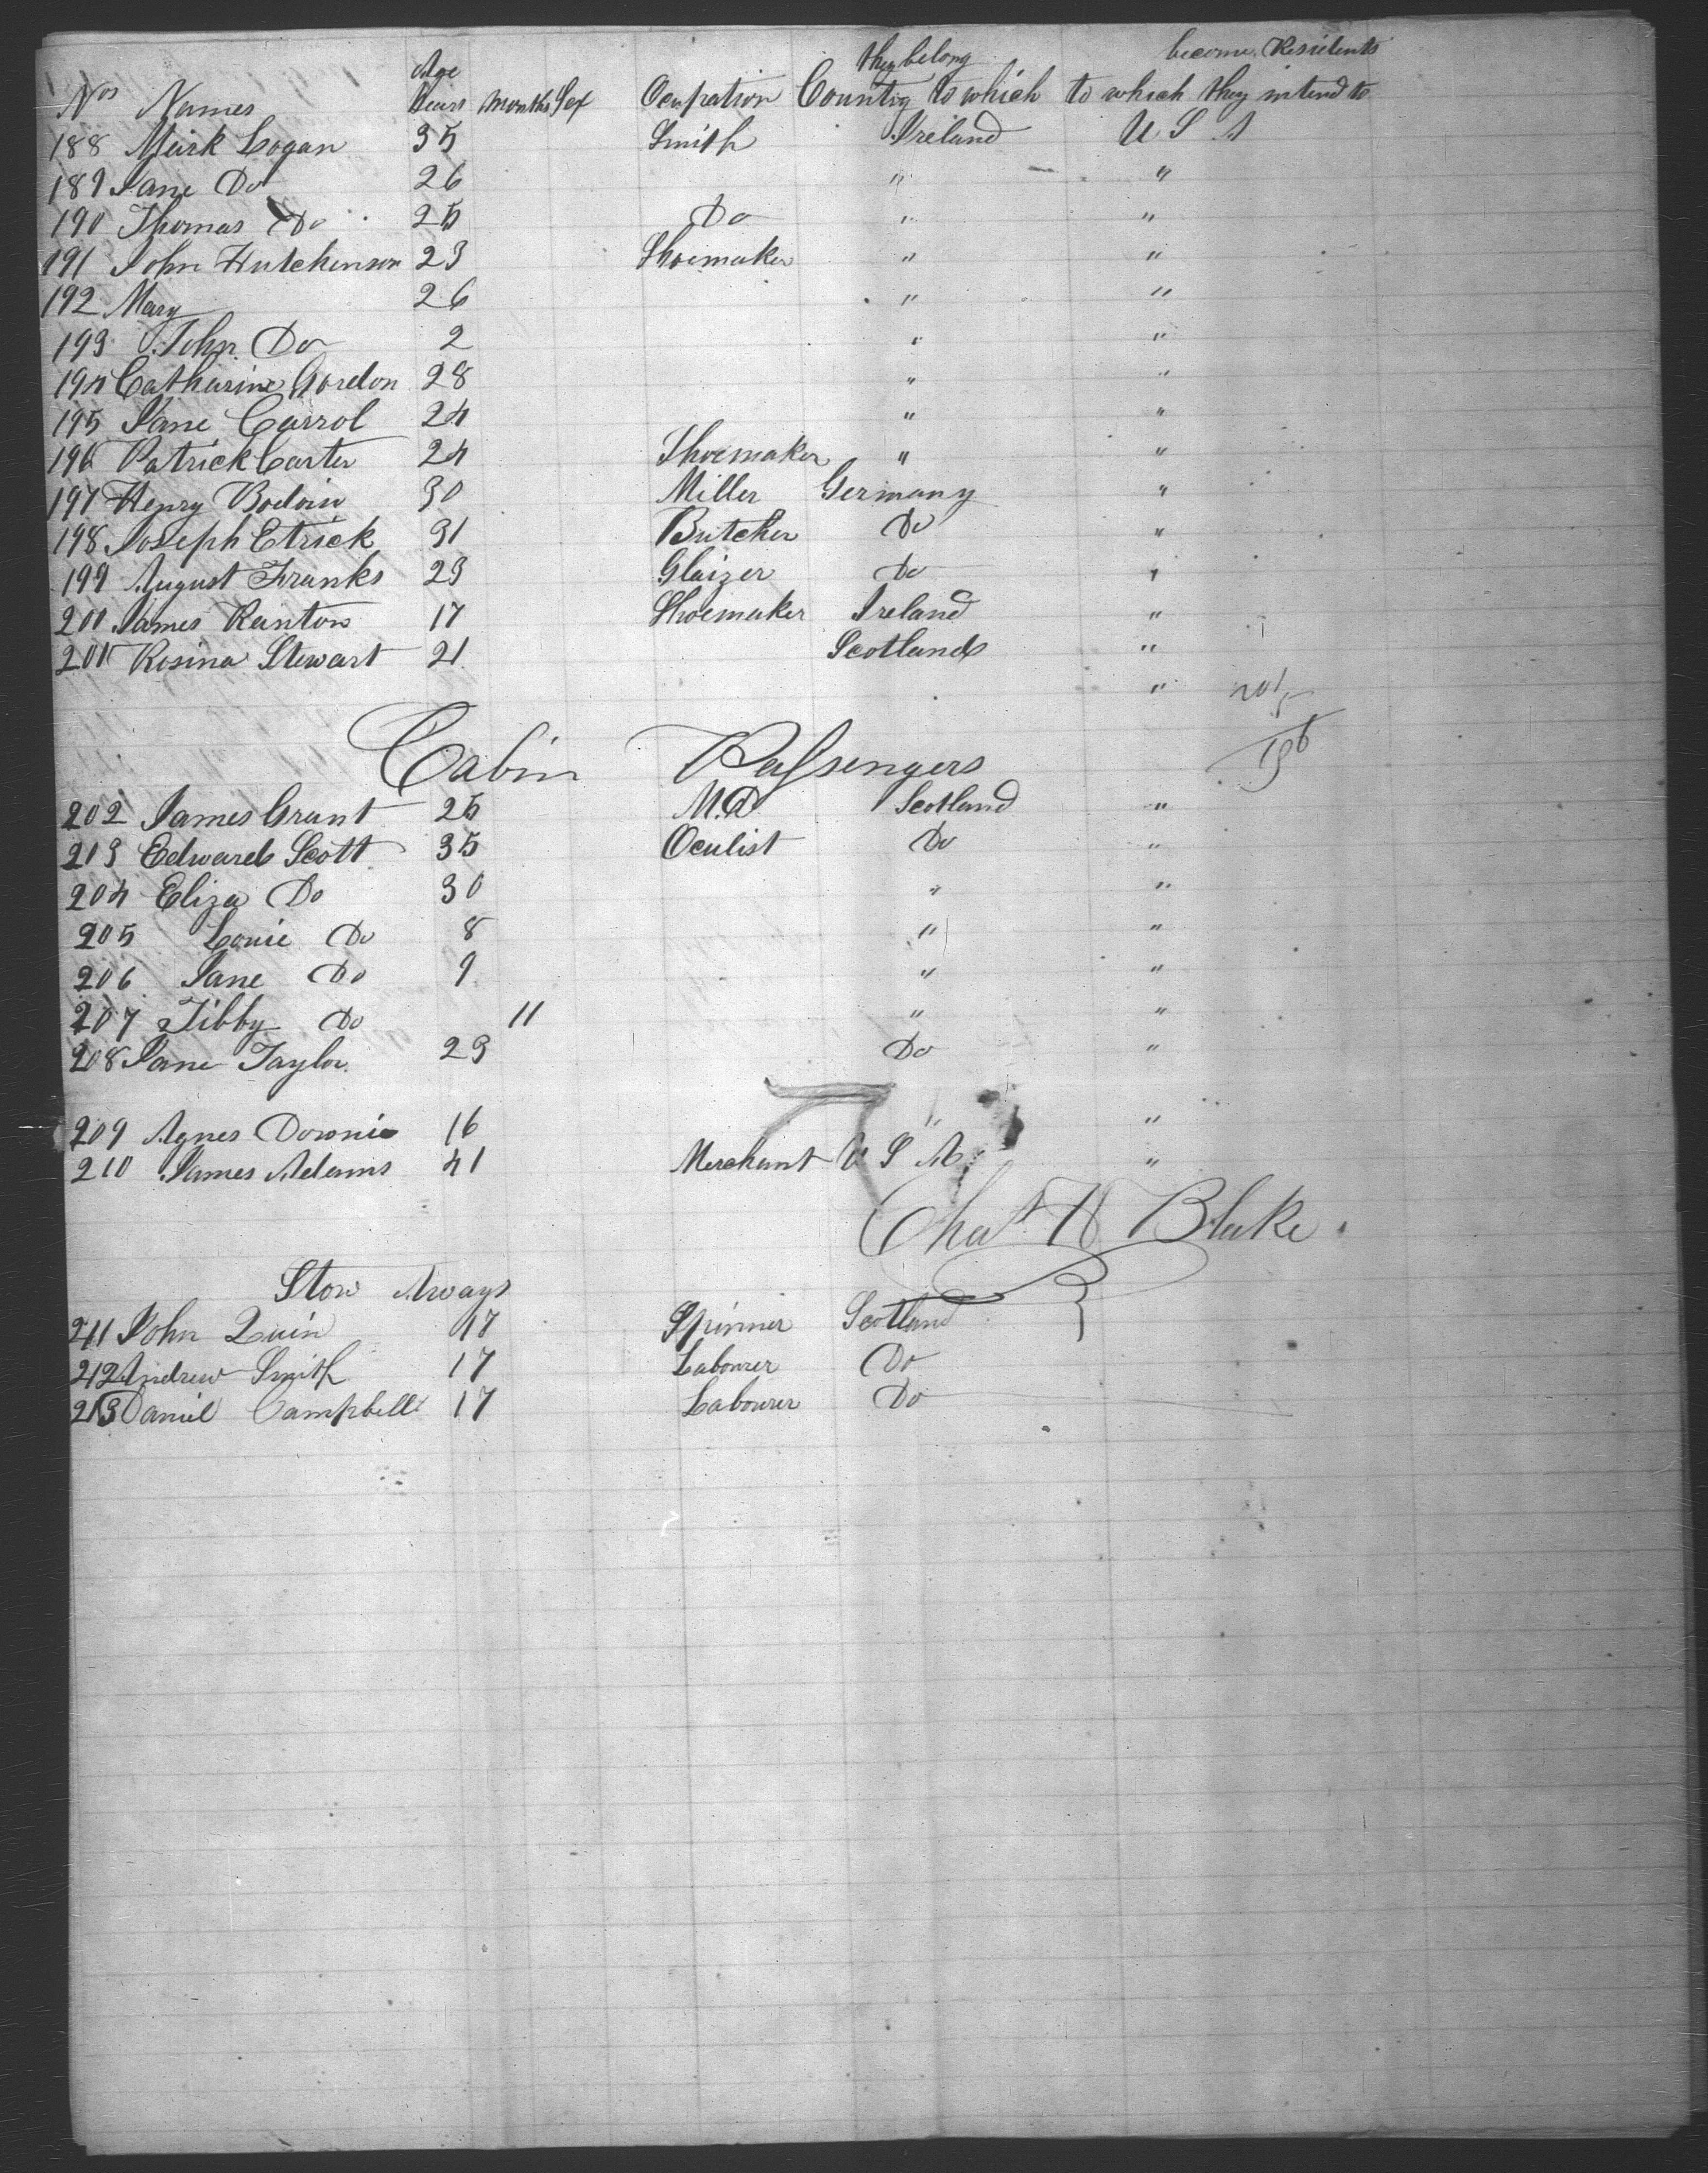 they belong become Residents
Age
Nos Names Years Months Sex Ocupation Country to which to which they intend to
188 Mark Logan 35 Smith Ireland U S A
189 Jane Do 26 " "
190 Thomas Do 25 Do " "
191 John Hutchinson 23 Shoemaker " "
192 Mary 26 " "
193 John Do 2 " "
194 Catharine Gordon 28 " "
195 Jane Carrol 24 " "
196 Patrick Carter 24 Shoemaker " "
197 Henry Bodoin 30 Miller Germany "
198 Joseph Etrick 31 Butcher Do "
199 August Franks 23 Glaizer Do "
200 James Ranton 17 Shoemaker Ireland "
201 Rosina Stewart 21 Scotland "
" 201
5
196
Cabin Passengers
202 James Grant 25 M.D Scotland "
203 Edward Scott 35 Oculist Do "
204 Eliza Do 30 " "
205 Louie Do 8 " "
206 Jane Do 9 " "
207 Tibby Do 11 " "
208 Jane Taylor 23 Do "
209 Agnes Downie 16 " "
210 James Adams 41 Merchant U S A "
Chas H Blake
Stow Aways
211 John Quin 17 Spinner Scotland
212 Andrew Smith 17 Labourer Do
213 Daniel Campbell 17 Labourer Do